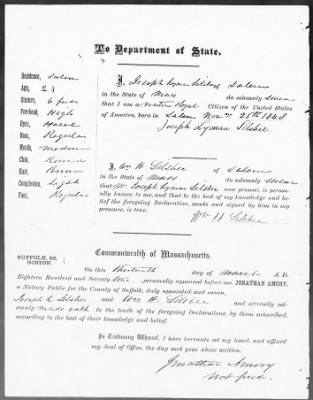 To Department of State.
Residence, Salem
Age, 23
Stature, 6 feet
Forehead, High
Eyes, Hazel
Nose, Regular
Mouth, medium
Chin, Round
Hair, Brown
Complexion, Light
Face, Regular
I, Joseph Lyman Silsbee of Salem
in the State of Mass do solemnly swear
that I am a native loyal Citizen of the United States
of America, born in Salem Nov 25th 1848
Joseph Lyman Silsbee
I, Wm H Silsbee of Salem
in the State of Mass do solemnly swear
that Mr Joseph Lyman Silsbee now present, is person-
ally known to me, and that to the best of my knowledge and be-
lief the foregoing Declaration, made and signed by him in my
presence, is true.
Wm H Silsbee
Commonwealth of Massachusetts.
SUFFOLK, SS.
BOSTON.
On this thirteenth day of March A. D.
Eighteen Hundred and Seventy personally appeared before me, JONATHAN AMORY,
a Notary Public for the County of Suffolk, duly appointed and sworn,
Joseph L Silsbee and Wm H. Silsbee and severally sol-
emnly made oath to the truth of the foregoing Declarations, by them subscribed,
according to the best of their knowledge and belief.
In Testimony Whereof, I have hereunto set my hand, and affixed
my Seal of Office, the day and year above written.
Jonathan Amory
Not Pub.